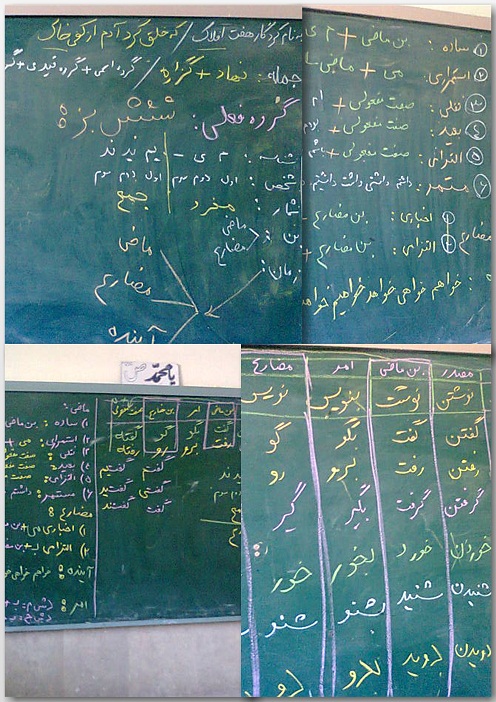 به نام کردگار هفت افلاک / که خلق کرد آدم از کفی خاک
جمله: نهاد + گزاره / گروه اسمی + گروه قیدی +
گروه فعلی: شش بزه
شناسه: م ی - یم ید ند
شخص: اول دوم سوم اول دوم سوم
شمار: مفرد جمع
بن: ماضی
مضارع
زمان:
ماضی
مضارع
آینده
① ساده: بن ماضی + م ی
② استمراری: می + ماضی
③ نقلی: صفت مفعولی + ام
④ بعید: صفت مفعولی +
⑤ التزامی: صفت مفعولی +
⑥ مستمر: داشتم داشتی داشت داشتیم
مضارع
① اخباری: بن مضارع
② التزامی: بن مضارع +
خواهم خواهی خواهد خواهیم
یا محمد (ص)
ماضی:
۱) ساده: بن ماضی
۲) استمراری: می +
۳) نقلی: صفت
۴) بعید: صفت
۵) التزامی: صفت
۶) مستمر: داشتم
مضارع:
۱) اخباری می + بن
۲) التزامی ب + بن
آینده: خواهم خواهی
امر:
بن ماضی امر بن مضارع صفت مفعولی
گفت بگو گو گفته
رفت برو رو رفته
گفتم گفتیم
گفتی گفتید
گفت گفتند
مصدر بن ماضی امر مضارع
نوشتن نوشت بنویس نویس
گفتن گفت بگو گو
رفتن رفت برو رو
گرفتن گرفت بگیر گیر
خوردن خورد بخور خور
شنیدن شنید بشنو شنو